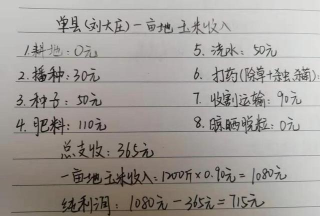 单县(刘大庄)一亩地玉米收入
1.耕地:0元
5.浇水:50元
2.播种:30元
6.打药(除草+杀虫、杀菌):
3.种子:50元
7.收割运输:90元
4.肥料:110元
8.晾晒脱粒:0元
总支收:365元
一亩地玉米收入:1200斤×0.90元=1080元
纯利润:1080元-365元=715元